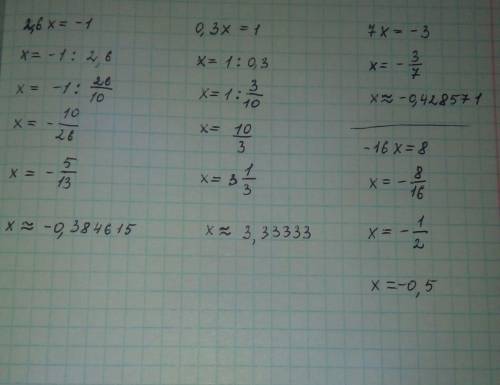 2,6x = -1
x = -1 : 2,6
x = -1 : 26/10
x = - 10/26
x = - 5/13
x ≈ -0,384615
0,3x = 1
x = 1 : 0,3
x = 1 : 3/10
x = 10/3
x = 3 1/3
x ≈ 3,33333
7x = -3
x = - 3/7
x ≈ -0,428571
-16x = 8
x = - 8/16
x = - 1/2
x = -0,5